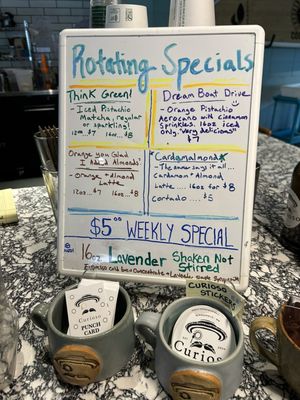 Rotating Specials
Think Green!
- Iced Pistachio
Matcha, regular
or sparkling!
12oz...$7 16oz...$8
Dream Boat Drive
- Orange Pistachio
Aerocano with cinnamon
sprinkles. 16oz iced
only. "very delicious"
$7
Orange you Glad
I Add Almonds?
- Orange + almond
Latte
12oz...$7 16oz...$8
Cardamalmond
- The name says it all...
Cardamom + Almond
Latte .... 16oz for $8
Cortado .... $5
$5.00 WEEKLY SPECIAL
16oz Lavender Shaken Not
Stirred
Espresso cold brew Concentrate + Lavender simple syrup
Curioso
PUNCH CARD
CURIOSO
STICKERS
Curioso